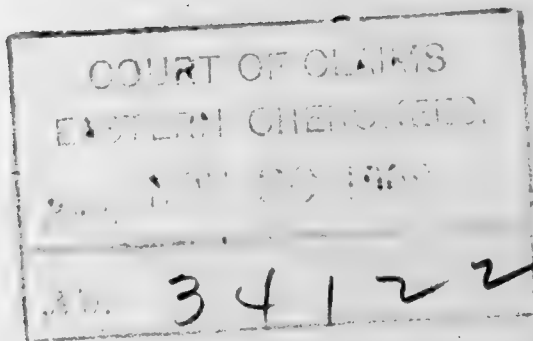 COURT OF CLAIMS
EASTERN CHEROKEES.
No. 34122